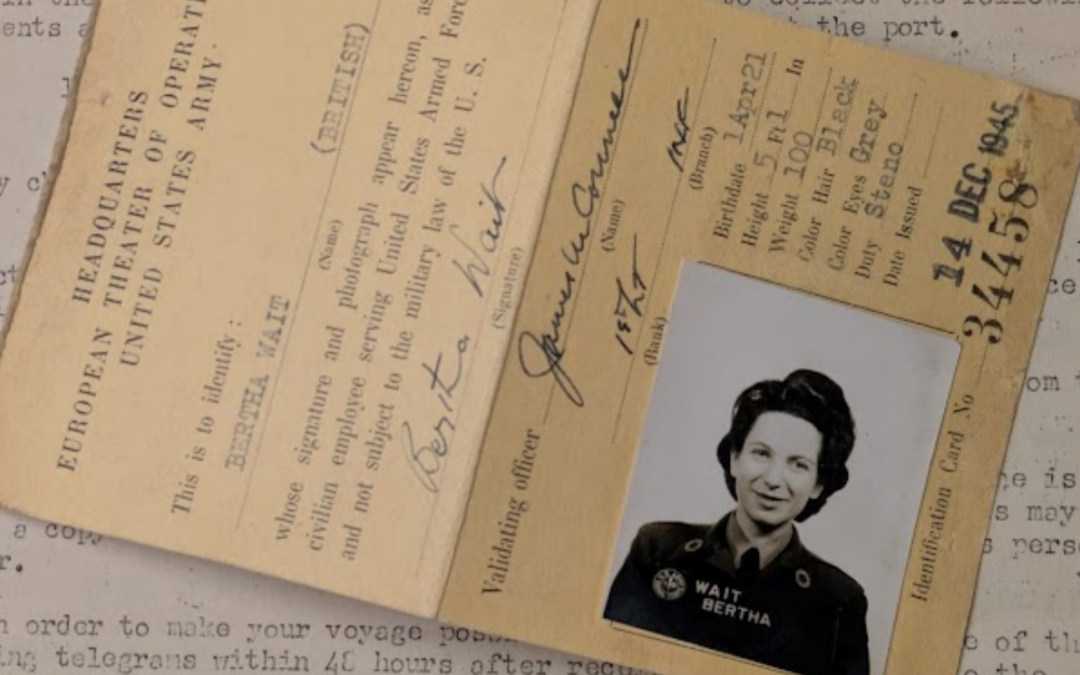 HEADQUARTERS
EUROPEAN THEATER OF OPERATI
UNITED STATES ARMY.
This is to identify:
BERTHA WAIT (BRITISH)
(Name)
whose signature and photograph appear hereon, as
civilian employee serving United States Armed Forc
and not subject to the military law of the U. S.
Bertha Wait
(Signature)
Validating officer
(Name)
1st Lt
(Rank) (Branch)
Birthdate 1Apr21
Height 5 Ft1 In
Weight 100
Color Hair Black
Color Eyes Grey
Duty Steno
Date Issued
14 DEC 1945
Identification Card No 34458
WAIT
BERTHA
the port.
a copy
r.
order to make your voyage
telegrams within 48 hours after